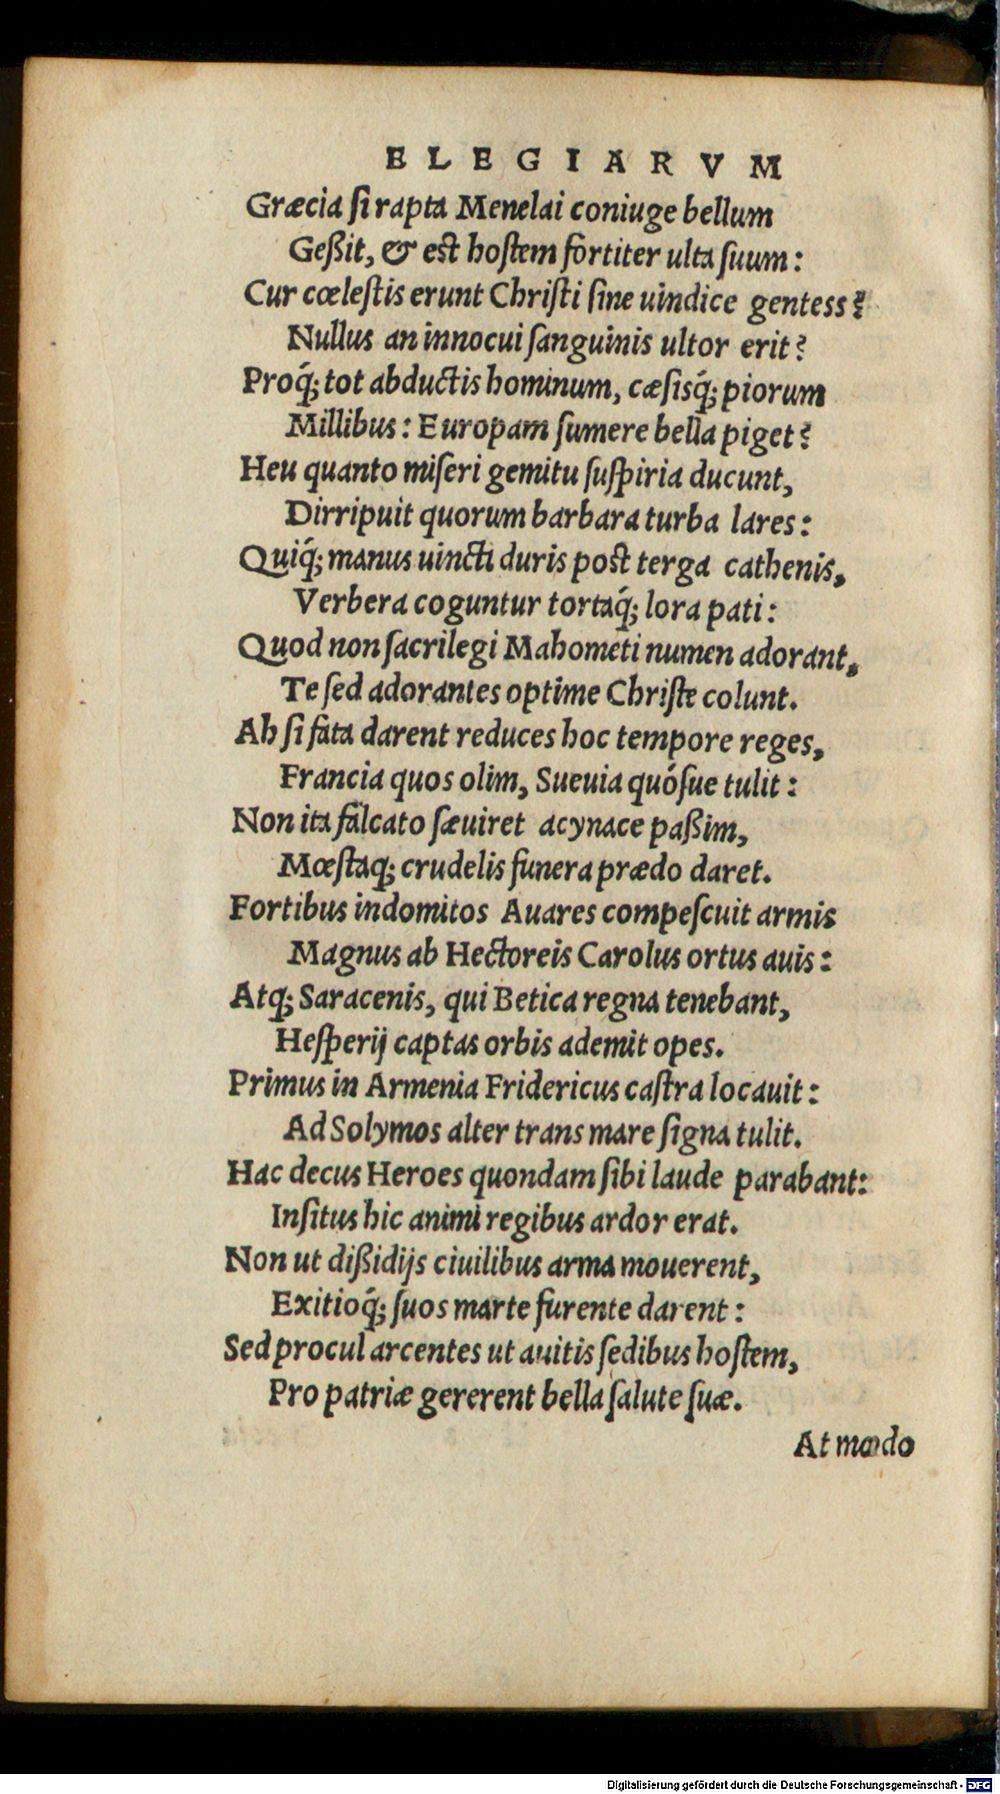 ELEGIARVM
Græcia ſi rapta Menelai coniuge bellum
Geßit, & est hoſtem fortiter ulta ſuum:
Cur cœleſtis erunt Chriſti ſine uindice gentess?
Nullus an innocui ſanguinis ultor erit?
Proq́; tot abductis hominum, cæſisq́; piorum
Millibus: Europam ſumere bella piget?
Heu quanto miſeri gemitu ſuſpiria ducunt,
Dirripuit quorum barbara turba lares:
Quiq́; manus uincti duris post terga cathenis,
Verbera coguntur tortaq́; lora pati:
Quod non ſacrilegi Mahometi numen adorant,
Te ſed adorantes optime Chriſte colunt.
Ah ſi fata darent reduces hoc tempore reges,
Francia quos olim, Sueuia quóſue tulit:
Non ita falcato ſæuiret acynace paßim,
Mœſtaq; crudelis funera prædo daret.
Fortibus indomitos Auares compeſcuit armis
Magnus ab Hectoreis Carolus ortus auis:
Atq; Saracenis, qui Betica regna tenebant,
Heſperij captas orbis ademit opes.
Primus in Armenia Fridericus caſtra locauit:
Ad Solymos alter trans mare ſigna tulit.
Hac decus Heroes quondam ſibi laude parabant:
Inſitus hic animi regibus ardor erat.
Non ut dißidijs ciuilibus arma mouerent,
Exitioq́; ſuos marte furente darent:
Sed procul arcentes ut auitis ſedibus hoſtem,
Pro patriæ gererent bella ſalute ſuæ.
At modo
Digitalisierung gefördert durch die Deutsche Forschungsgemeinschaft - DFG